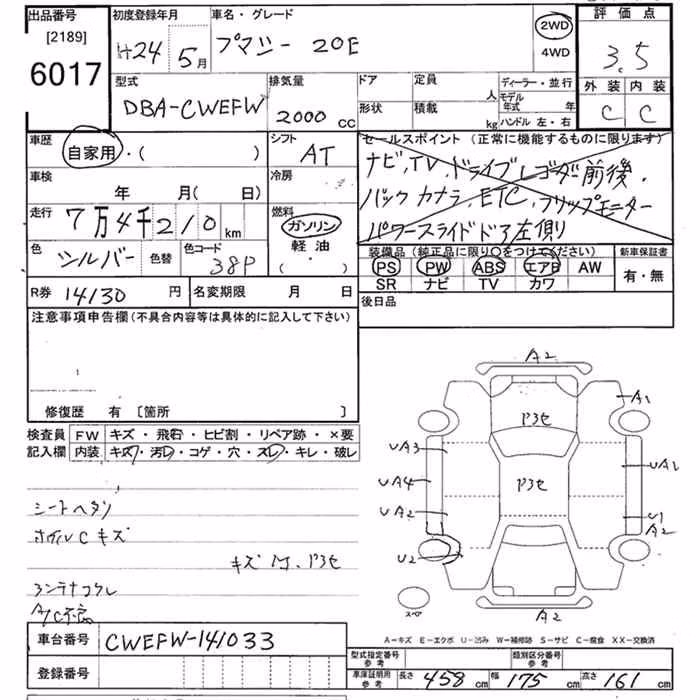 出品番号 初度登録年月 車名・グレード 評価点
[2189] H24 5月 プマシー 20E 2WD 3.5
6017 4WD
型式 排気量 ドア 定員 人 ディーラー・並行 外装 内装
DBA-CWEFW 2000 CC 形状 積載 kg モデル年式 年 C C
ハンドル 左・右
車歴 シフト セールスポイント (正常に機能するものに限ります)
自家用・( ) AT ナビ,TV,ドライブレコダー前後、
車検 冷房 バックカメラ,ETC,フリップモニター
年 月( 日) パワースライドドア左側
走行 7万4千210km 燃料 ガソリン
軽油
( ・ )
色 シルバー 色替 色コード 38P
装備品 (純正品に限り○をつけてください) 新車保証書
PS PW ABS エアB AW 有・無
SR ナビ TV カワ
R券 14130 円 名変期限 月 日 後日品
注意事項申告欄 (不具合内容等は具体的に記入して下さい)
修復歴 有 [箇所 ]
検査員 FW キズ・飛石・ヒビ割・リペア跡・×要
記入欄 内装 キズ・汚レ・コゲ・穴・スレ・キレ・破レ
シートヘタリ
ホイルCキズ
キズ
A/C不良
A2
A1
UA3
UA4
UA2
U2
UA2
U1
A2
A2
スペア
A-キズ E-エクボ U-凹み W-補修跡 S-サビ C-腐食 XX-交換済
車台番号 CWEFW-141033
登録番号
型式指定番号 参考 類別区分番号 参考
車庫証明用 参考 長さ 458 cm 幅 175 cm 高さ 161 cm